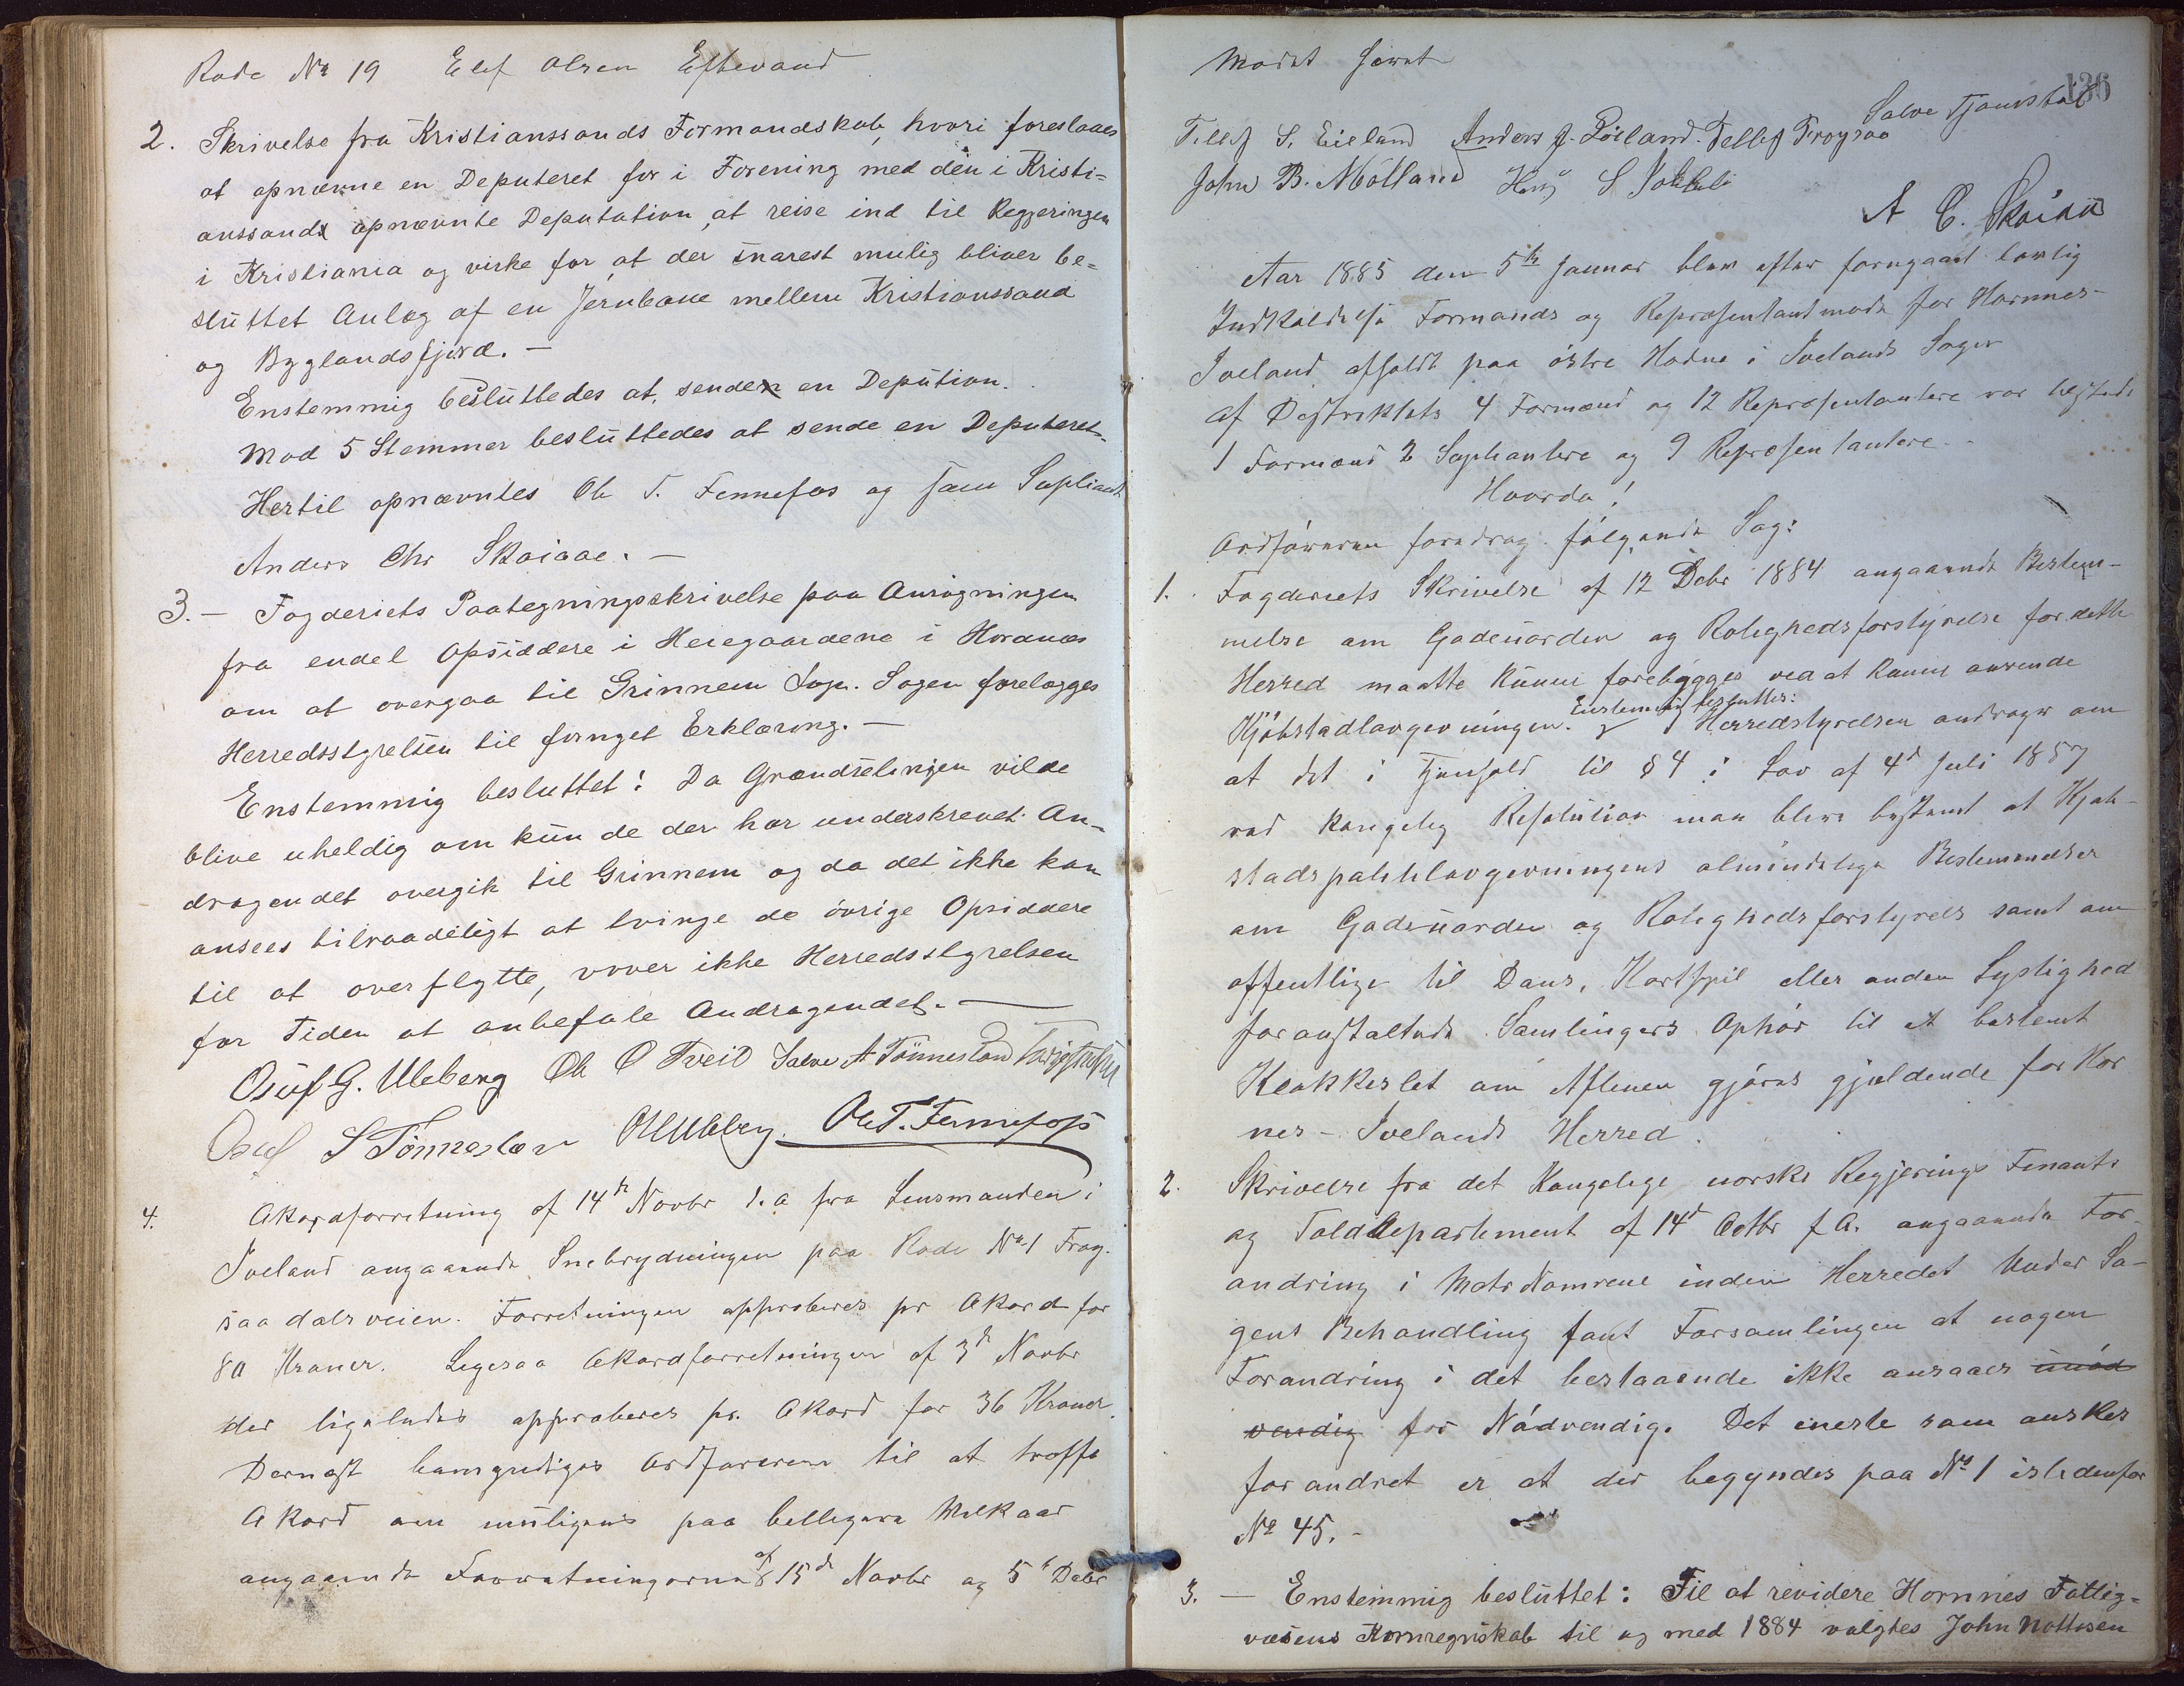 Rode No 19 Elef Olsen Eftevand
2. Skrivelse fra Kristianssands Formandskab, hvori foreslaaes
at opnævne en Deputeret for i Forening med den i Kristi=
anssand opnævnte Deputation, at reise ind til Regjeringen
i Kristiania og virke for at der snarest mulig bliver be=
sluttet Anlæg af en Jernbane mellem Kristianssand
og Byglandsfjord. —
Enstemmig besluttedes at sende en Depution.
Mod 5 Stemmer besluttedes at sende en Deputeret.
Hertil opnævntes Ole T. Fennefos og som Supliant
Anders Chr Skaiaae. —
3. — Fogderiets Paategningsskrivelse paa Ansøgningen
fra endel Opsiddere i Heiegaardene i Hordnæs
om at overgaa til Grinnem Sogn. Sagen forelægges
Herredsstyrelsen til fornyet Erklæring. —
Enstemmig besluttet: Da Grændselinjen vilde
blive uheldig om kun de der har underskrevet An-
dragendet overgik til Grinnem og da det ikke kan
ansees tilraadeligt at tvinge de övrige Opsiddere
til at overflytte, vover ikke Herredsstyrelsen
for Tiden at anbefale Andragendet. —
Osuf G. Uleberg Ole O Tveit Salve A Tönnesland
Osuf S Tönnesland O Uleberg. Ole T. Fennefoss
4. Akordforretning af 14de Novbr d. a fra Lensmanden i
Iveland angaaende Snebrydningen paa Rode No 1 Frøy-
saadalsveien. Forretningen approberes pr Akord for
80 Kroner. Ligesaa Akordforretningen af 3de Novbr
der ligeledes approberes pr. Akord for 36 Kroner.
Dernæst bemyndiges Ordføreren til at træffe
Akord om muligens paa billigere Vilkaar
angaaende Forretningerne af 15de Novbr og 5te Debr
Mødet hævet
136
Salve Tjomstøl
Tellef S. Eieland Anders J. Löiland. Tellef Frøysaa
John B. Mölland S
A C. Skaiaa
Aar 1885 den 5te Januar blev efter forngaaet lovlig
Indkaldelse Formands og Repræsentantmøde for Hornnes-
Iveland afholdt paa östre Hodne i Ivelands Sogn
Af Distriktets 4 Formænd og 12 Repræsentantere var tilstede
1 Formand 2 Suplantere og 9 Repræsentantere. -
Hvorda!
Ordføreren foredrog følgende Sag:
1. Fogderiets Skrivelse af 12 Debr 1884 angaaende Bestem-
melse om Gadeuorden og Rolighedsforstyrelse for dette
Herred maatte kunne forebygges ved at kunne anvende
Kjöbstadlovgivningen. Enstemmig besluttes: Herredstyrelsen andrager om
at det i Henhold til § 4 i Lov af 4de Juli 1857
ved kongelig Resolution maa blive bestemt at Kjøb-
stadspolitilovgivningens almindelige Bestemmelser
om Gadeuorden og Rolighedsforstyrels samt om
offentlige til Dans, Kortspil eller anden Lystighed
foranstaltede Samlingers Ophør til et bestemt
Klokkeslet om Aftenen gjøres gjældende for Hor
nes - Ivelands Herred.
2. Skrivelse fra det Kongelige norske Regjerings Finants
og Tolddepartement af 14de Octbr f A. angaaende For
andring i Matr Namrene inden Herredet Under Sa-
gens Behandling fant Forsamlingen at nogen
Forandring i det bestaaende ikke ansaaes unød
vendig for Nødvendig. Det eneste som ønskes
forandret er at der begyndes paa No 1 istedenfor
No 45. -
3. — Enstemmig besluttet: Til at revidere Hornnes Fattig=
væsens Kornregnskab til og med 1884 valgtes John Nottosen